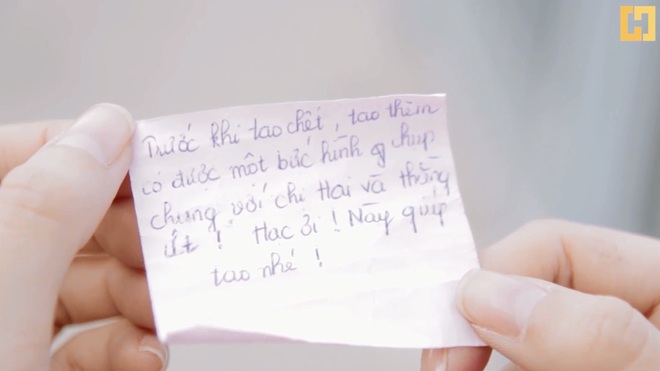 Trước khi tao chết, tao thèm
có được một bức hình chụp
chung với chị Hai và thằng
út! Hạc ơi! Này giúp
tao nhé!